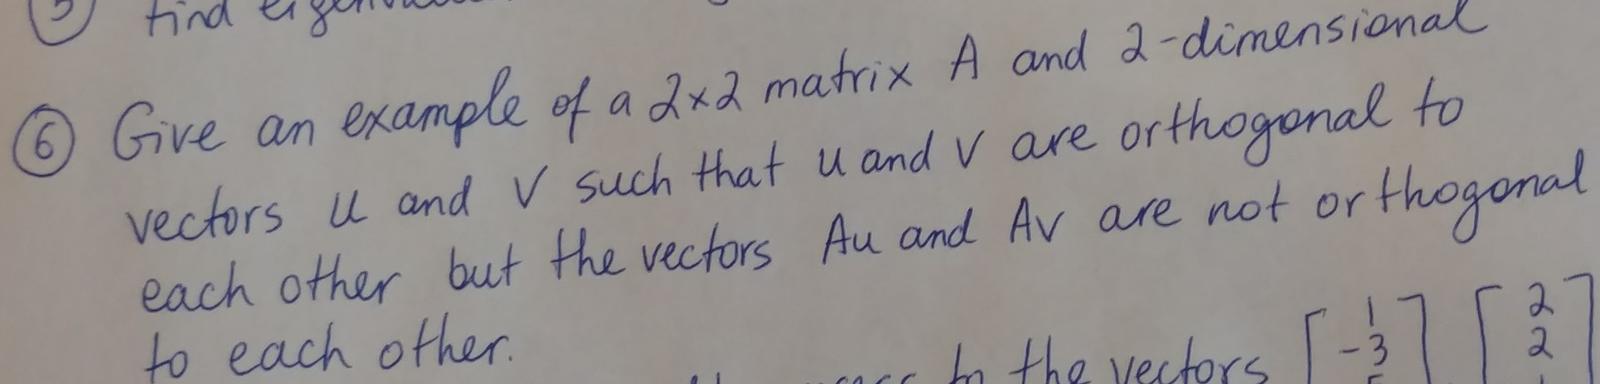 ⑤ find
⑥ Give an example of a 2×2 matrix A and 2-dimensional
vectors u and v such that u and v are orthogonal to
each other but the vectors Au and Av are not orthogonal
to each other.
to the vectors [1 -3 [2 2